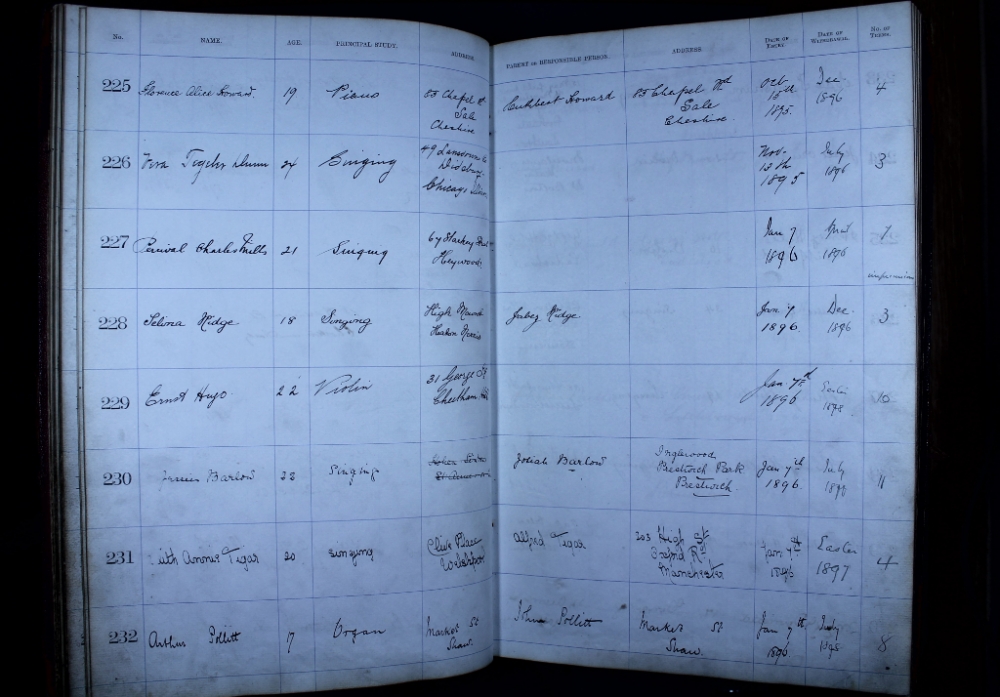 No. NAME. AGE. PRINCIPAL STUDY. ADDRESS PARENT or RESPONSIBLE PERSON. ADDRESS DATE OF ENTRY. DATE OF WITHDRAWAL. NO. OF TERMS.
225 Florence Alice Howard. 19 Piano 85 Chapel Rd Cuthbert Howard 85 Chapel Rd Oct Dec 4
Sale Sale 15th 1896
Cheshire Cheshire. 1895.
226 Vera 24 Singing 49 Nov. July 3
Didsbury 13th 1896
Chicago 1895
227 Percival Charles Mills 21 Singing 67 Starkey Jan 7 1
Heywood 1896 1896
228 Selina Ridge 18 Singing High Jabez Ridge Jan 7 Dec. 3
Heaton Norris 1896. 1896
229 Ernst Hugo 22 Violin 31 George St Jan 7th Easter 10
Cheetham 1896
230 Barlow Singing Josiah Barlow Inglewood Jan 7th July 11
Prestwich Park 1896.
Prestwich
231 Annie Tigar 20 Singing Clive Place Alfred Tigar 203 High St Jan 7th Easter 4
Welshpool Oxford Rd 1896 1897
Manchester
232 Arthur Pollitt 17 Organ Market St John Pollitt Market St Jan 7th. July 8
Shaw. Shaw. 1896. 1898